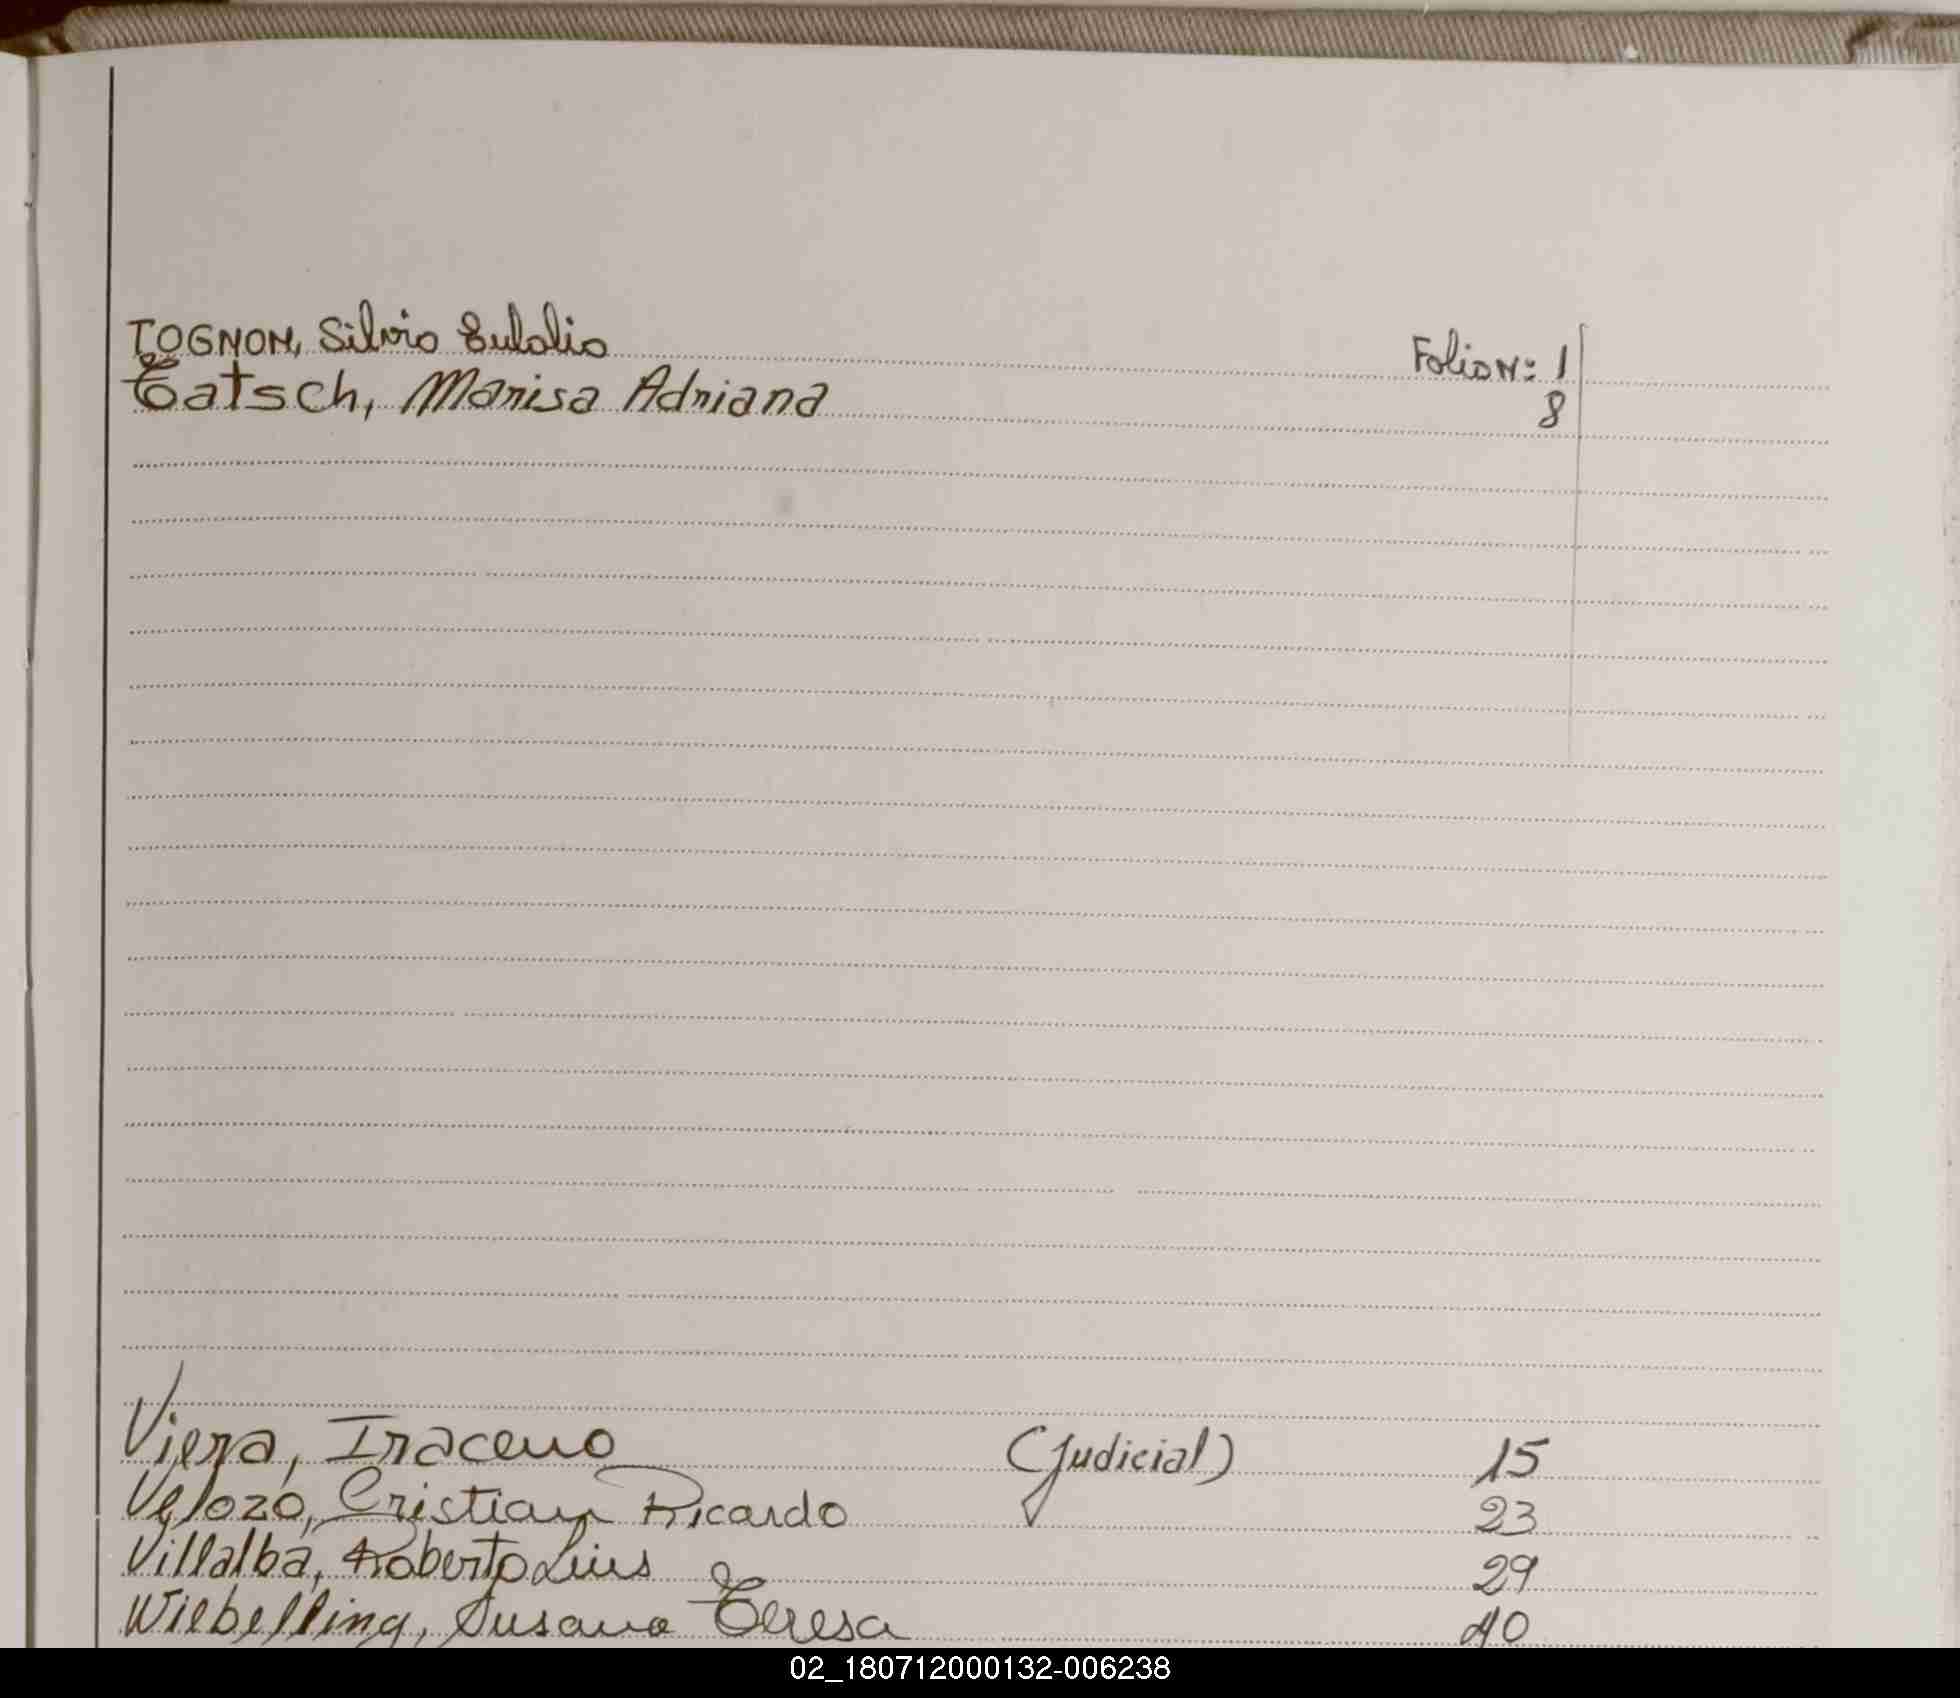 TOGNON, Silvio Eulalio Folio N: 1
Tatsch, Marisa Adriana 8
Viera, Iraceno (Judicial) 15
Velozo, Cristian Ricardo 23
Villalba, Roberto Luis 29
Wiebelling, Susana Teresa 40
02_180712000132-006238